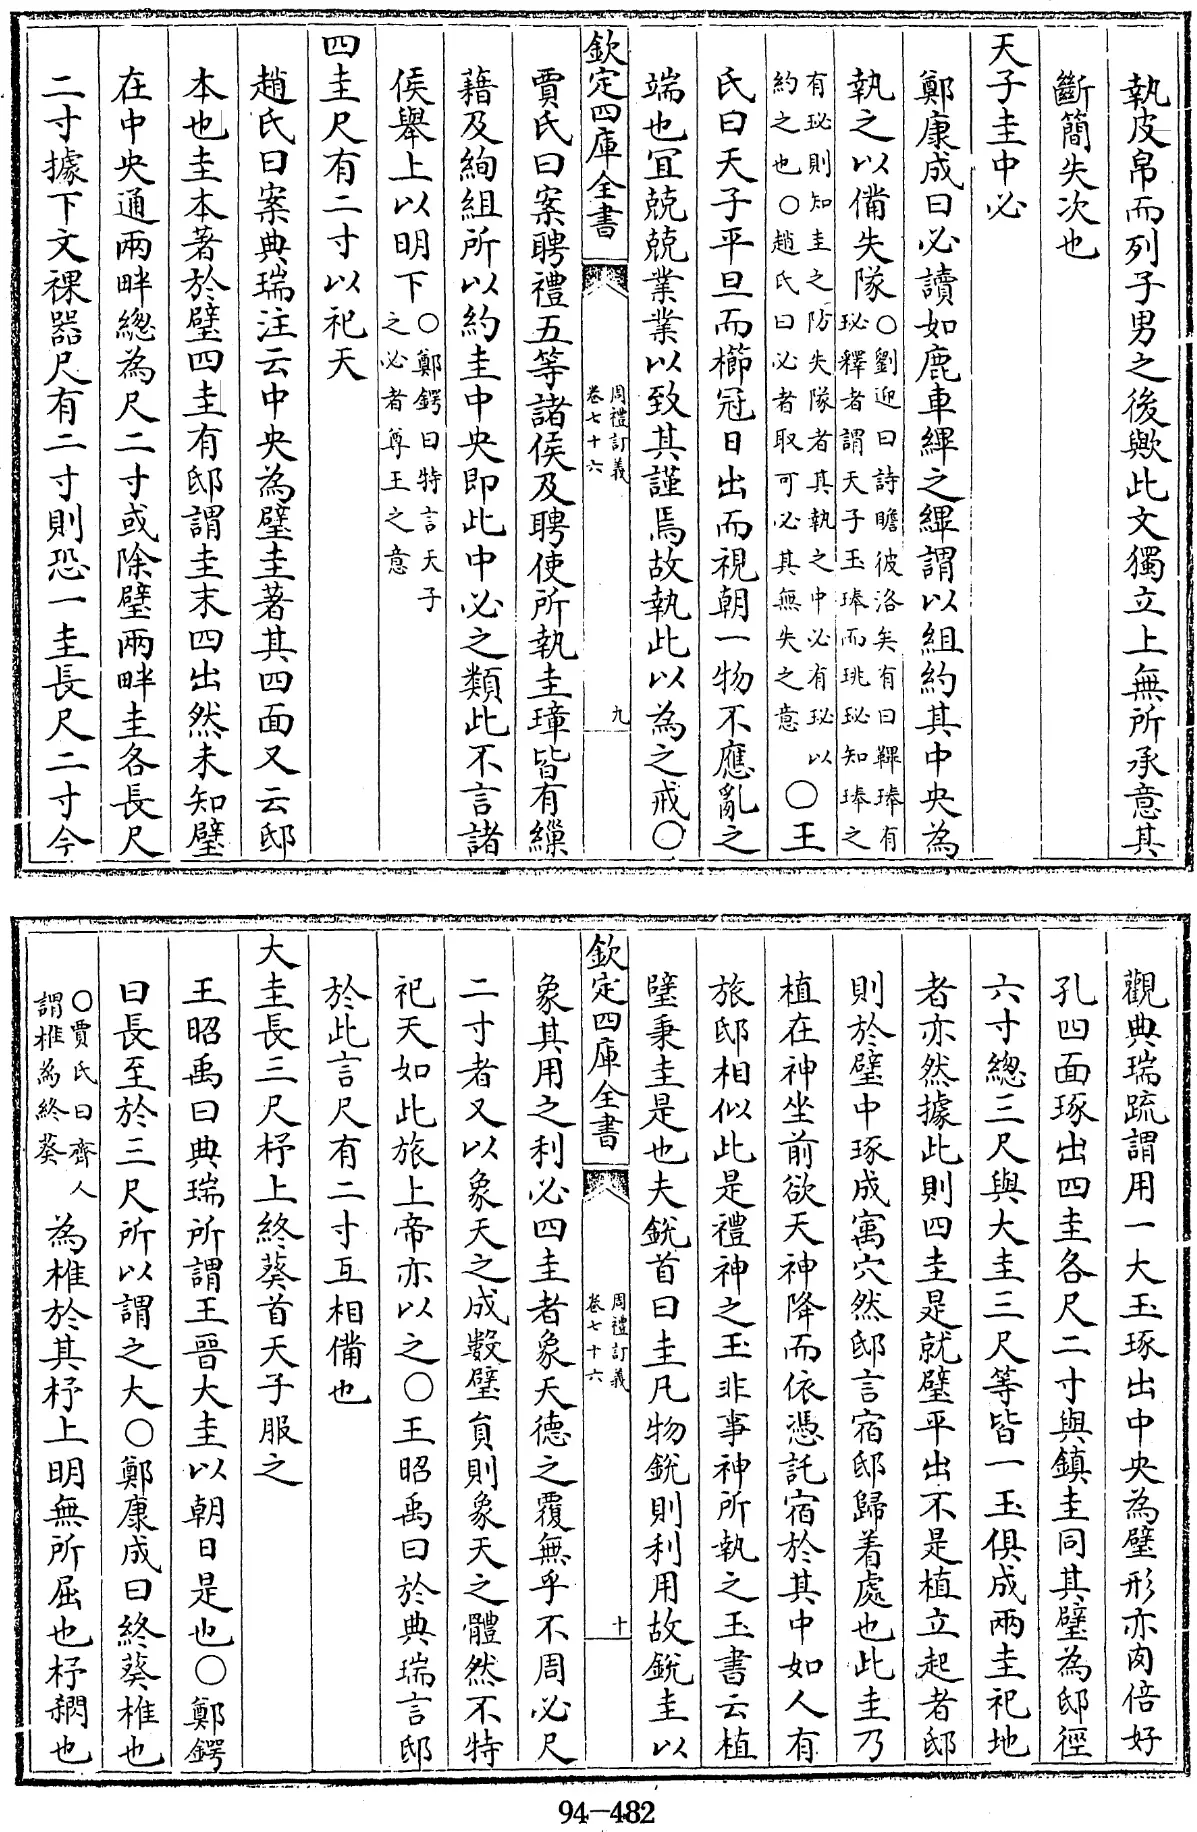 執皮帛而列子男之後歟此文獨立上無所承意其
斷簡失次也
天子圭中必
鄭康成曰必讀如鹿車縪之縪謂以組約其中央為
執之以備失隊○劉迎曰詩瞻彼洛矣有曰鞸琫有珌釋者謂天子玉琫而珧珌知琫之
有珌則知圭之防失隊者其執之中必有珌以約之也○趙氏曰必者取可必其無失之意○王
氏曰天子平旦而櫛冠日出而視朝一物不應亂之
端也宜兢兢業業以致其謹焉故執此以為之戒○
欽定四庫全書
周禮訂義
卷七十六
九
賈氏曰案聘禮五等諸侯及聘使所執圭璋皆有繅
藉及絢組所以約圭中央即此中必之類此不言諸
侯舉上以明下○鄭鍔曰特言天子之必者尊王之意
四圭尺有二寸以祀天
趙氏曰案典瑞注云中央為璧圭著其四面又云邸
本也圭本著於璧四圭有邸謂圭末四出然未知璧
在中央通兩畔總為尺二寸或除璧兩畔圭各長尺
二寸據下文祼器尺有二寸則恐一圭長尺二寸今
觀典瑞疏謂用一大玉琢出中央為璧形亦肉倍好
孔四面琢出四圭各尺二寸與鎮圭同其璧為邸徑
六寸總三尺與大圭三尺等皆一玉俱成兩圭祀地
者亦然據此則四圭是就璧平出不是植立起者邸
則於璧中琢成寓穴然邸言宿邸歸着處也此圭乃
植在神坐前欲天神降而依憑託宿於其中如人有
旅邸相似此是禮神之玉非事神所執之玉書云植
璧秉圭是也夫銳首曰圭凡物銳則利用故銳圭以
欽定四庫全書
周禮訂義
卷七十六
十
象其用之利必四圭者象天德之覆無乎不周必尺
二寸者又以象天之成數璧員則象天之體然不特
祀天如此旅上帝亦以之○王昭禹曰於典瑞言邸
於此言尺有二寸互相備也
大圭長三尺杼上終葵首天子服之
王昭禹曰典瑞所謂王晉大圭以朝日是也○鄭鍔
曰長至於三尺所以謂之大○鄭康成曰終葵椎也
○賈氏曰齊人謂椎為終葵為椎於其杼上明無所屈也杼網也
94-482